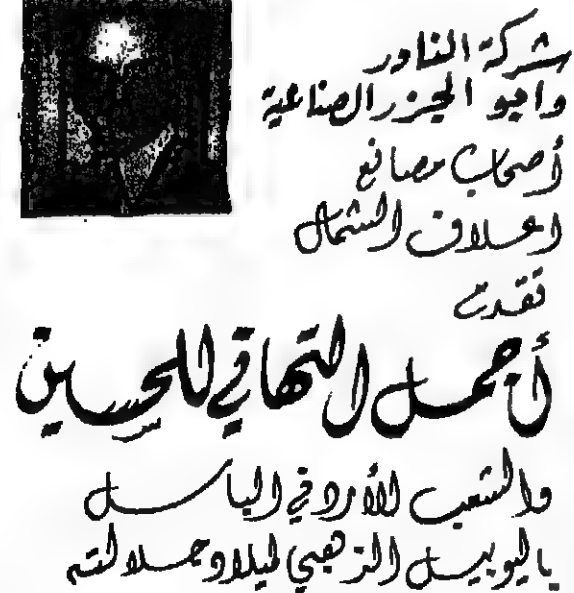 شركة النادر
وابو الجزر الصناعية
أصحاب مصانع
اعلاف الشمال
تقدم
أجمل التهاني للحسين
والشعب الأردني الباسل
باليوبيل الذهبي لميلاد جلالته